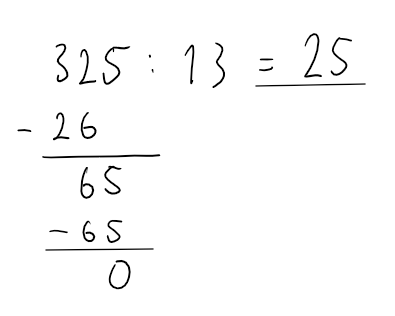 325 : 13 = 25
- 26
65
- 65
0